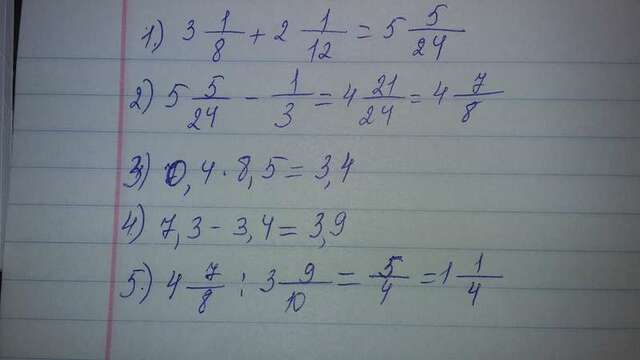 1) 3 1/8 + 2 1/12 = 5 5/24
2) 5 5/24 - 1/3 = 4 21/24 = 4 7/8
3) 0,4 · 8,5 = 3,4
4) 7,3 - 3,4 = 3,9
5) 4 7/8 : 3 9/10 = 5/4 = 1 1/4